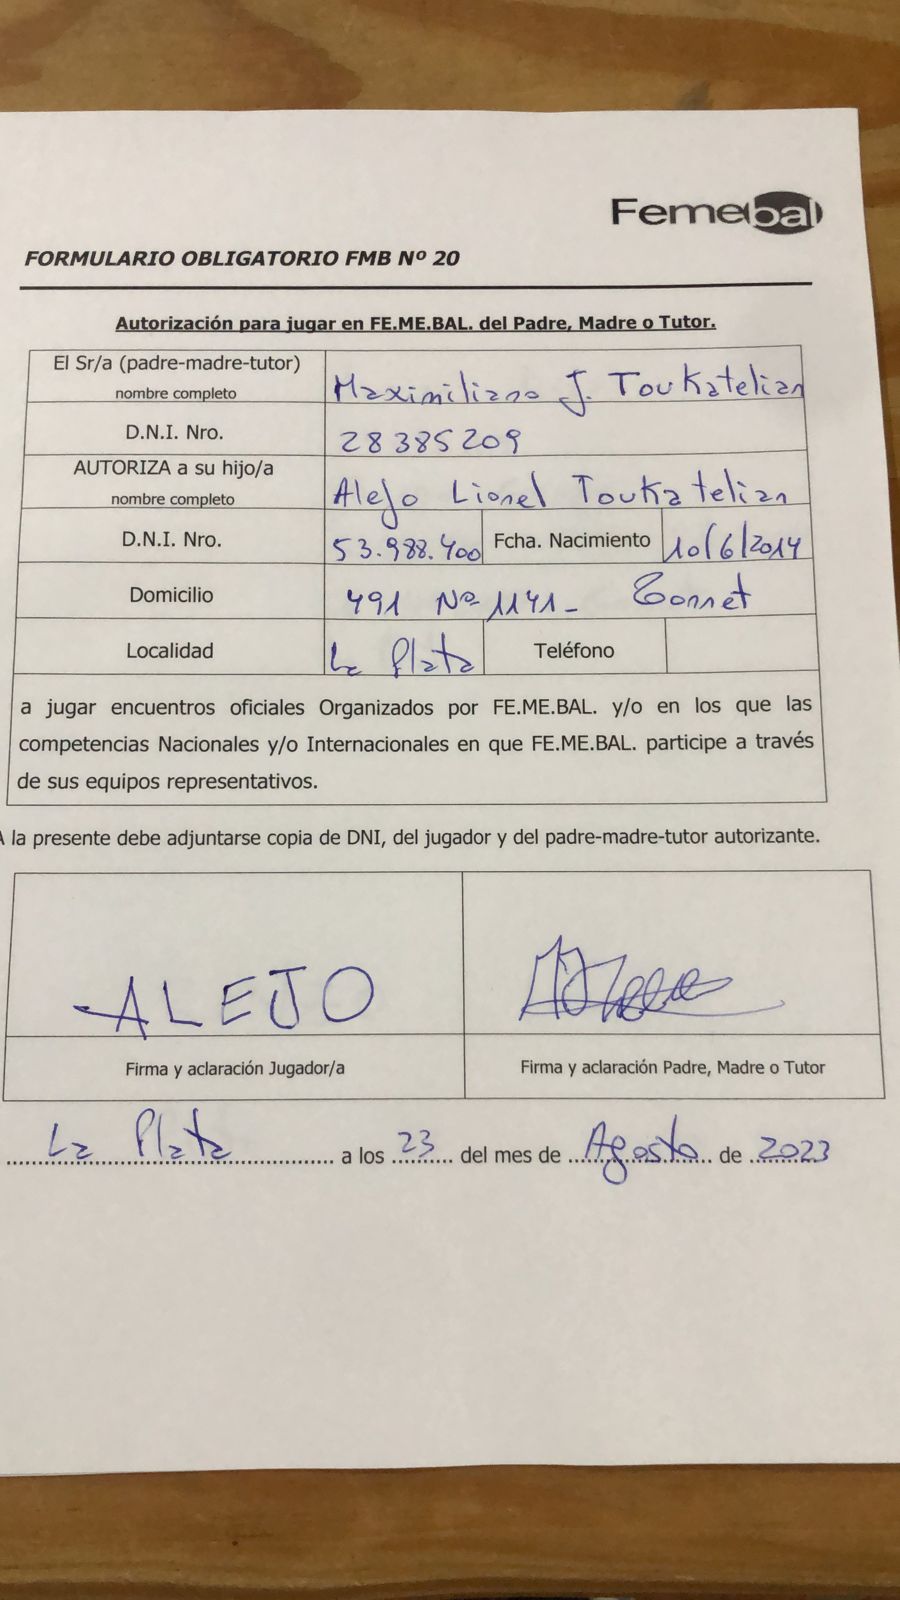 Femebal
FORMULARIO OBLIGATORIO FMB Nº 20
Autorización para jugar en FE.ME.BAL. del Padre, Madre o Tutor.
El Sr/a (padre-madre-tutor)
nombre completo
Maximiliano J. Toukatelian
D.N.I. Nro.
28385209
AUTORIZA a su hijo/a
nombre completo
Alejo Lionel Toukatelian
D.N.I. Nro.
53.988.400
Fcha. Nacimiento
10/6/2014
Domicilio
491 Nº 1141 -
Localidad
La Plata
Teléfono
a jugar encuentros oficiales Organizados por FE.ME.BAL. y/o en los que las
competencias Nacionales y/o Internacionales en que FE.ME.BAL. participe a través
de sus equipos representativos.
A la presente debe adjuntarse copia de DNI, del jugador y del padre-madre-tutor autorizante.
ALEJO
Firma y aclaración Jugador/a
Firma y aclaración Padre, Madre o Tutor
La Plata a los 23 del mes de Agosto de 2023